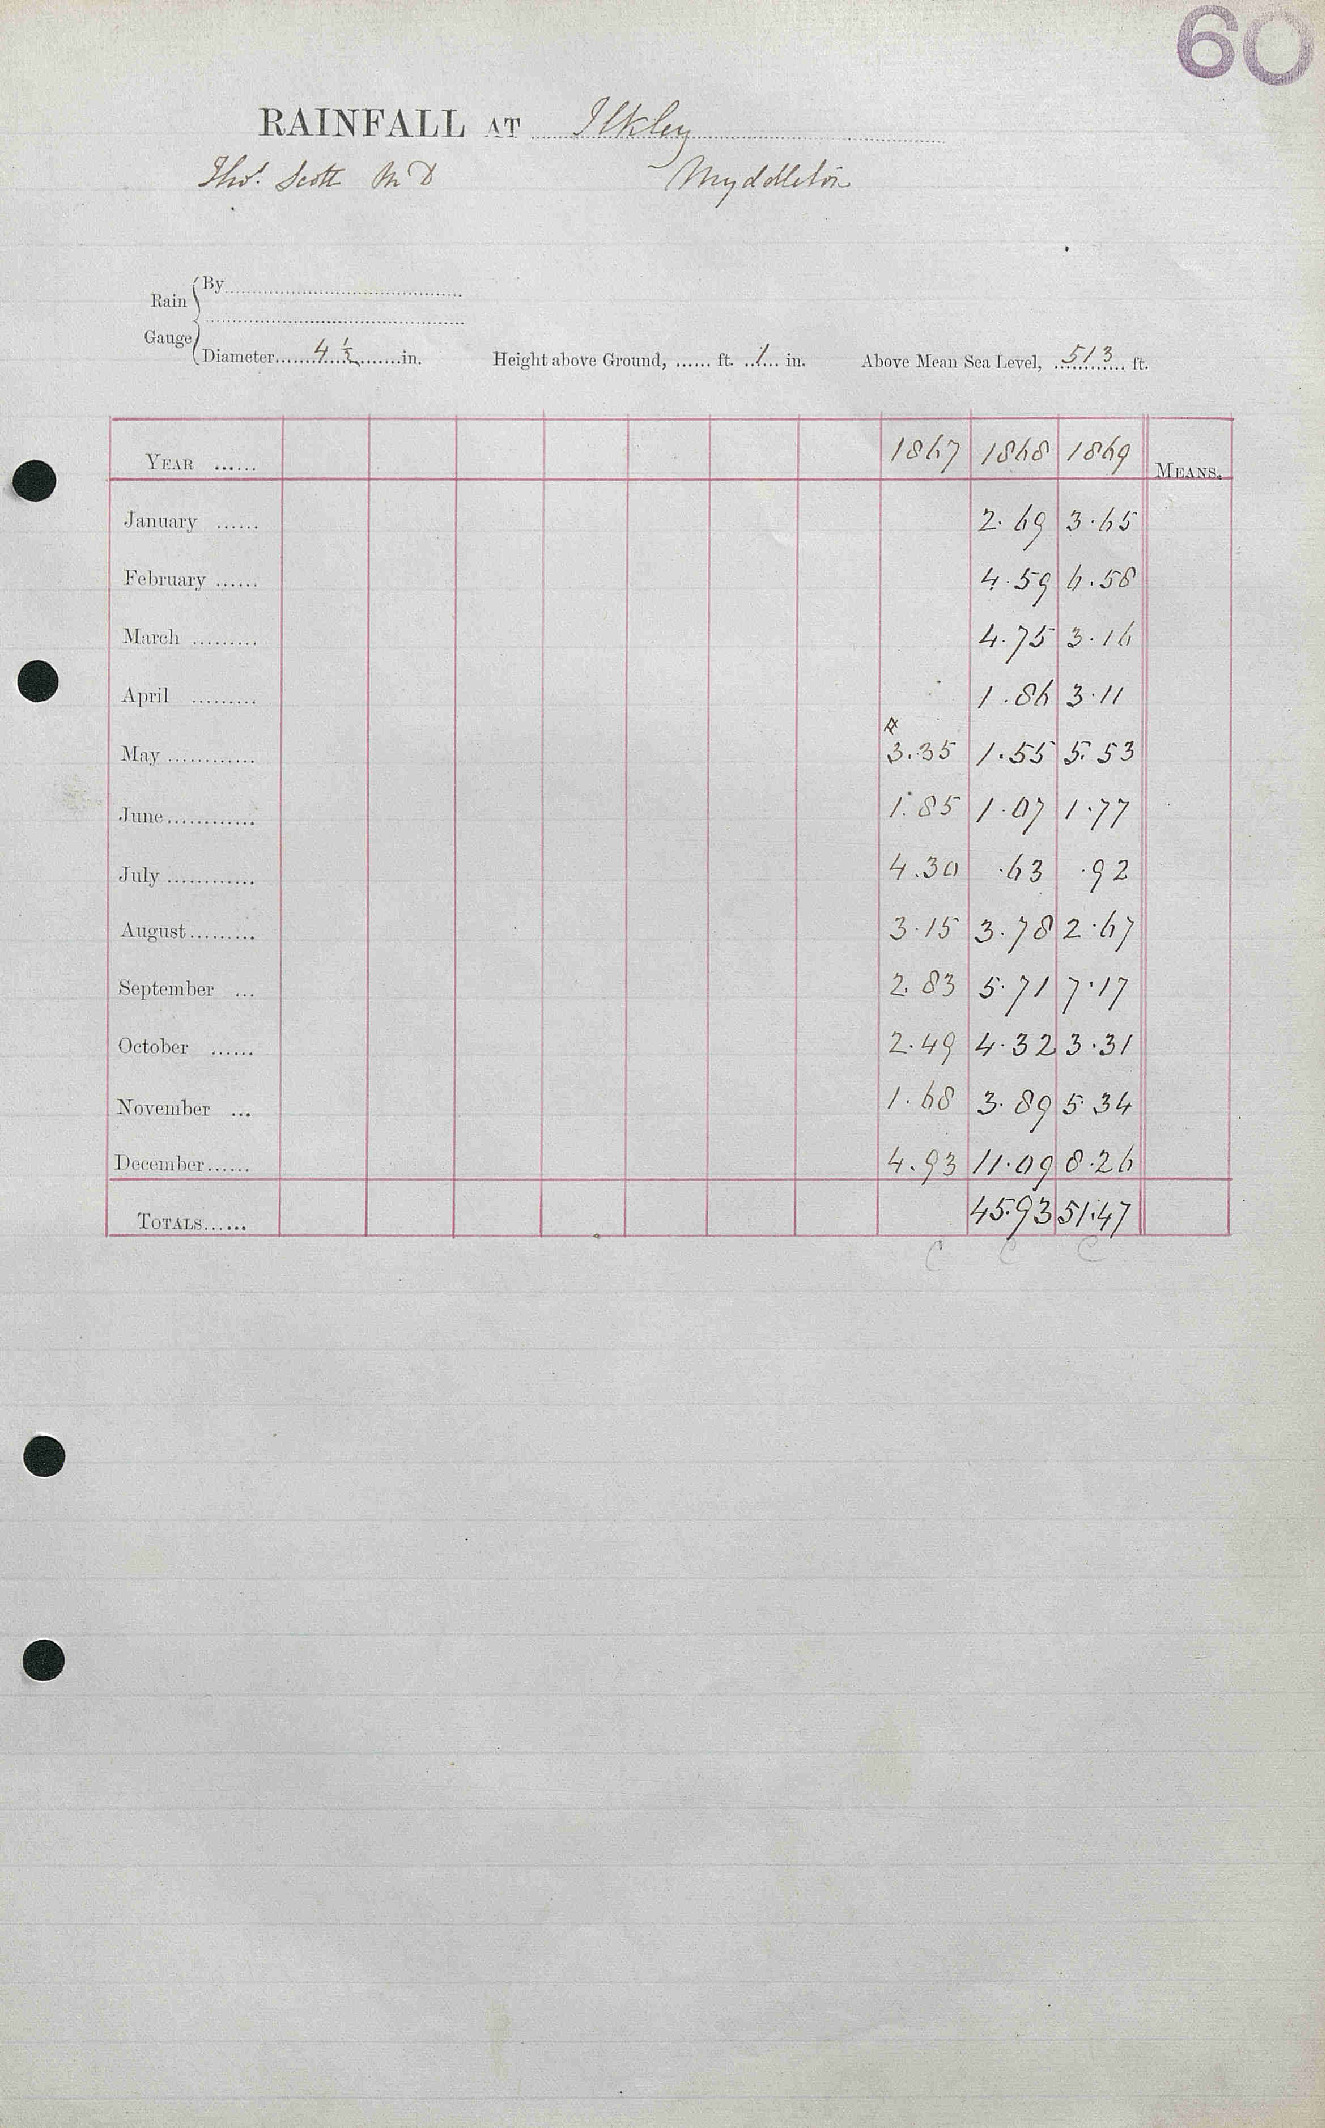 60
RAINFALL AT Ilkley
Thos. Scott M D Myddleton
Rain Gauge
By
Diameter 4 1/2 in. Height above Ground, ...... ft. 1 in. Above Mean Sea Level, 513 ft.
YEAR ...... 1867 1868 1869 MEANS.
January ...... 2.69 3.65
February ...... 4.59 6.58
March ......... 4.75 3.16
April ......... 1.86 3.11
May ............ 3.35 1.55 5.53
June ............ 1.85 1.07 1.77
July ............ 4.30 .63 .92
August ......... 3.15 3.78 2.67
September ... 2.83 5.71 7.17
October ...... 2.49 4.32 3.31
November ... 1.68 3.89 5 34
December ...... 4.93 11.09 8.26
TOTALS ...... 45.93 51.47
C C C